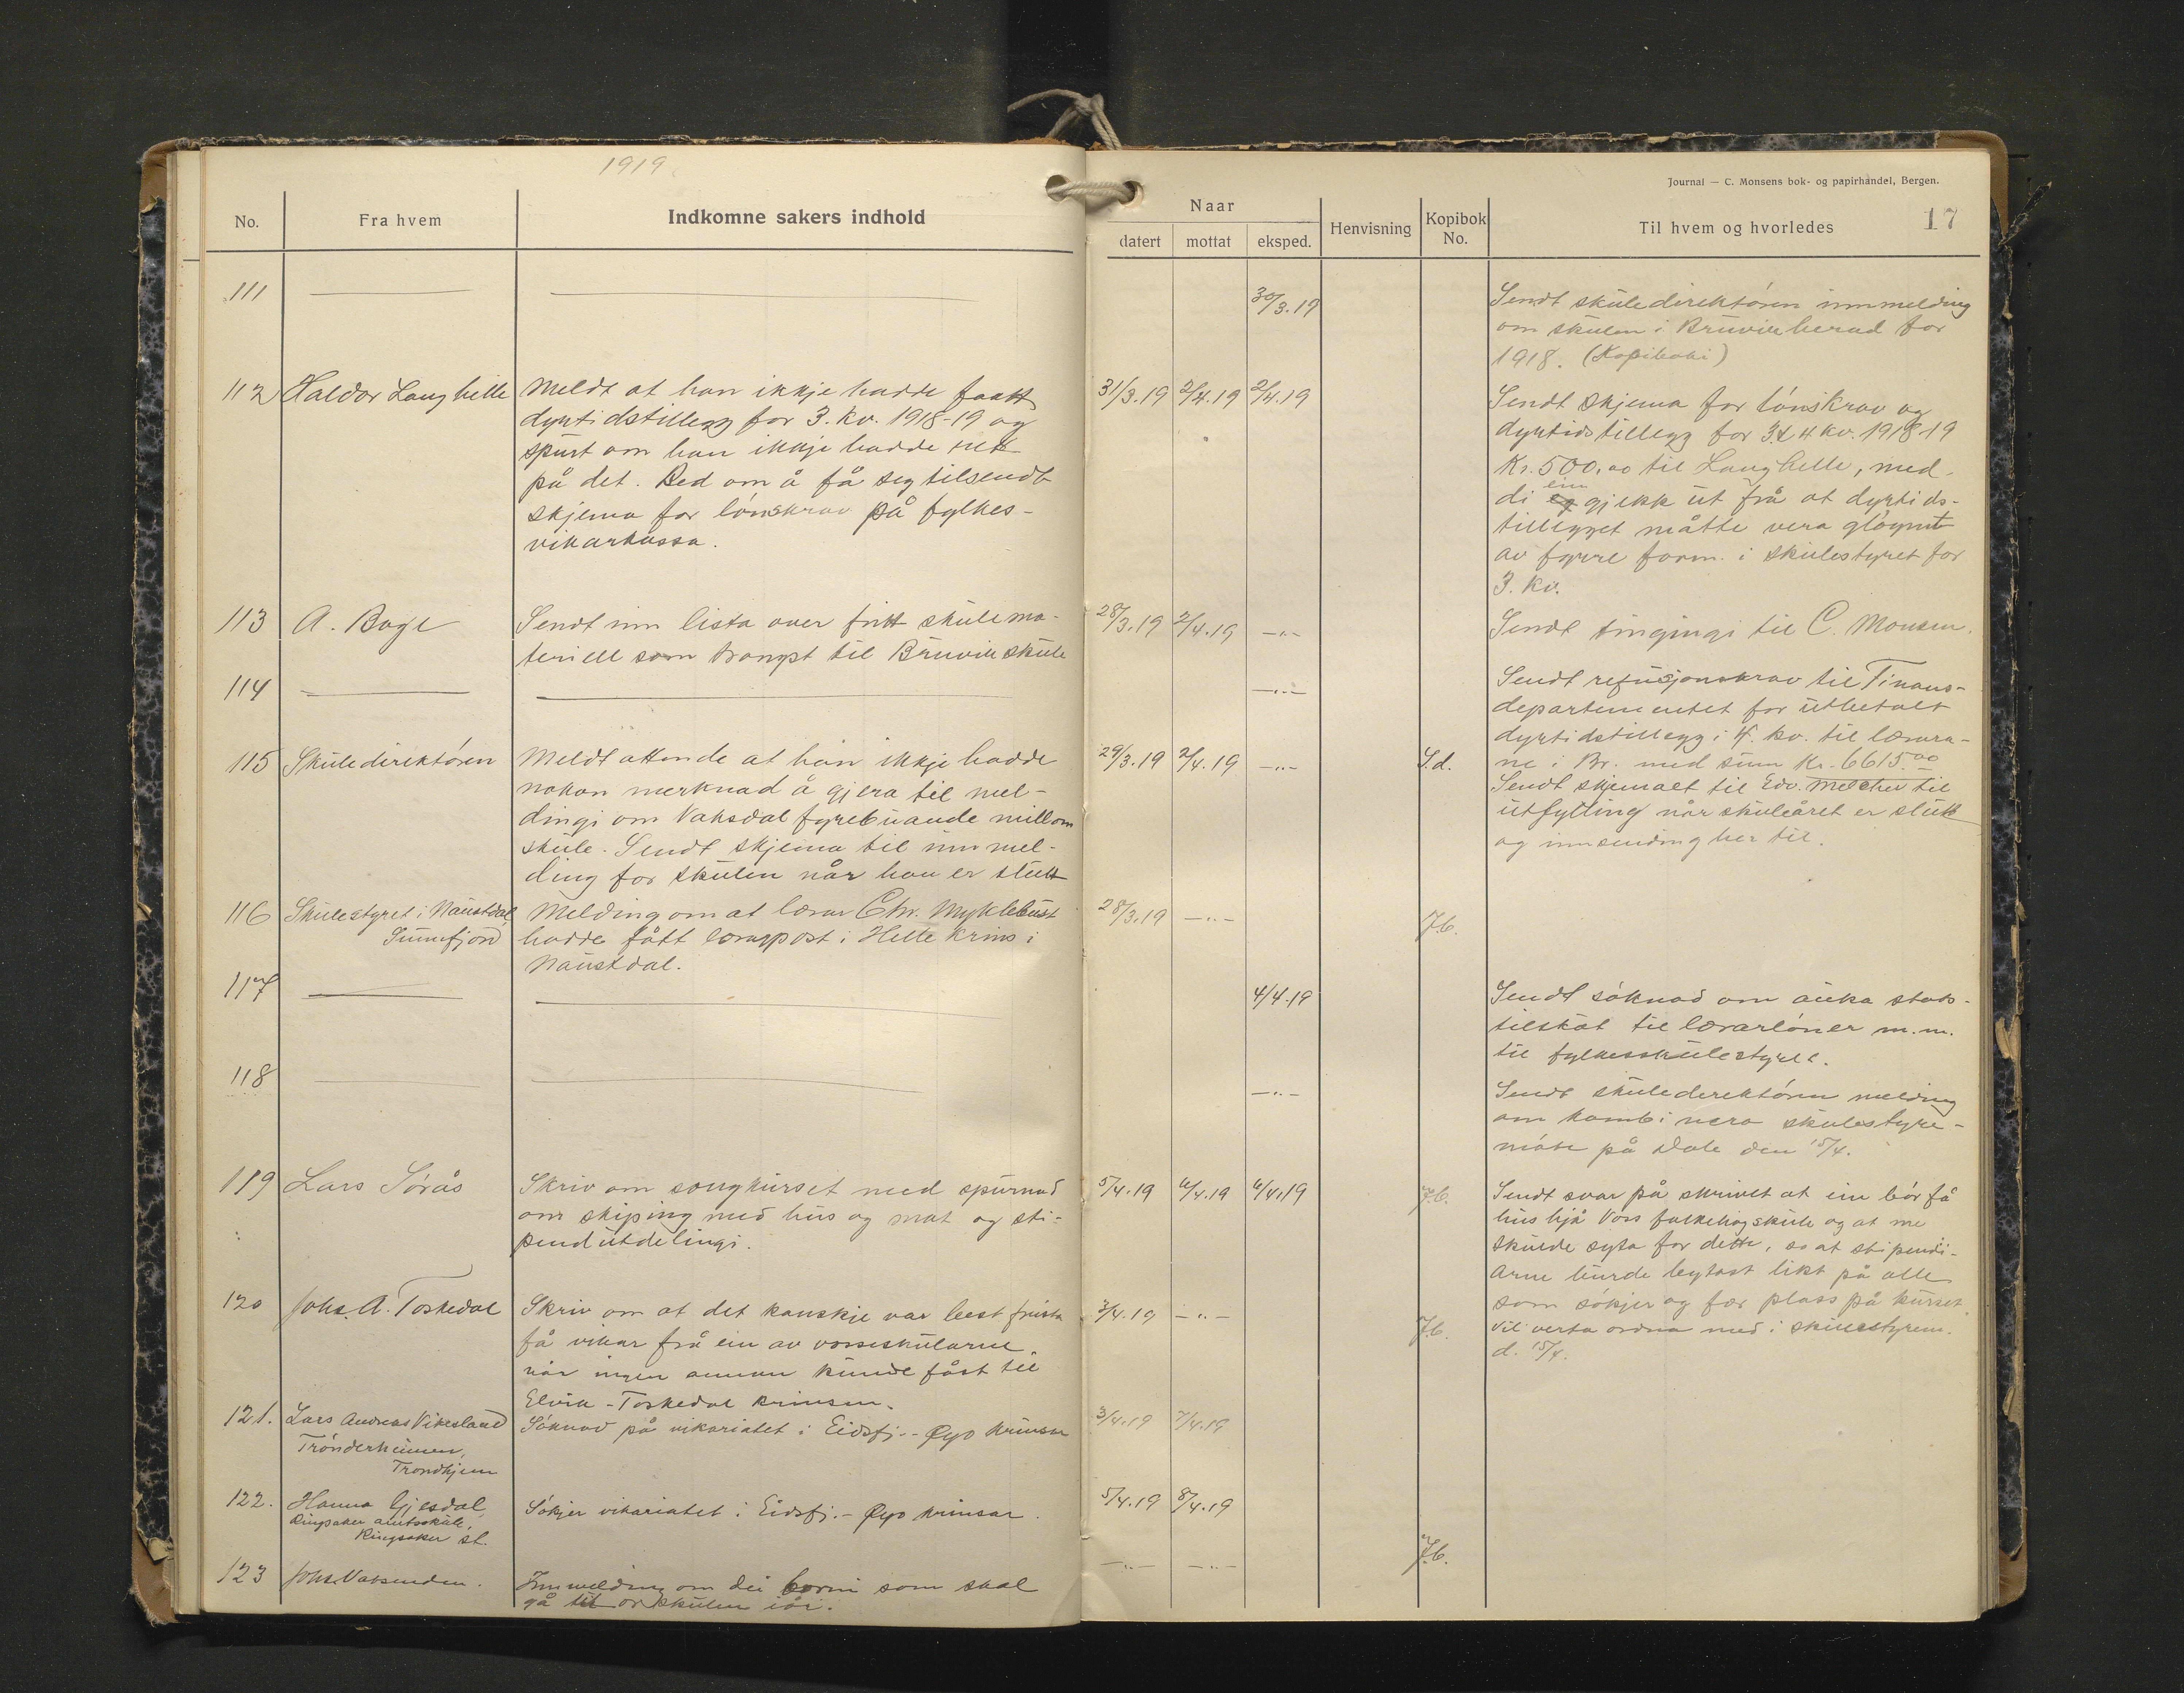 1919
No.
Fra hvem
Indkomne sakers indhold
Journal — C. Monsens bok- og papirhandel, Bergen.
17
Naar
datert
mottat
eksped.
Henvisning
Kopibok
No.
Til hvem og hvorledes
111
30/3.19
Sendt skuledirektören innmelding
om skulen i Bruvik herad for
1918. (Kopiboki)
112 Haldor Langhelle
Meldt at han ikkje hadde faatt
dyrtidstillegg for 3. kv. 1918-19 og
spurt om han ikkje hadde rett
på det. Bed om å få seg tilsendt
skjema for lönskrav på fylkes-
vikarkassa.
31/3.19 2/4.19 2/4.19
Sendt skjema for lönskrav og
dyrtidstillegg for 3. & 4 kv. 1918-19
Kr. 500.00 til Langhelle, med-
ein
di eg gjekk ut frå at dyrtids-
tillegget måtte vera glöymt
av fyrre form. i skulestyret for
3. kv.
113 A. Boge
Sendt inn lista over fritt skulema-
teriell som trongst til Bruvik skule
28/3.19 2/4.19 —„—
Sendt tingingi til C. Monsen.
114
—„—
Sendt refusjonskrav til Finans-
departementet for utbetalt
dyrtidstillegg i 4. kv. til lærara-
ne i Br. med sum Kr. 6615.00
115 Skuledirektören
Meldt attende at han ikkje hadde
nokon merknad å gjera til mel-
dingi om Vaksdal fyrebuande millom
skule. Sendt skjema til innmel-
ding for skulen når han er slutt
29/3.19 2/4.19 —„—
S.d.
Sendt skjemaet til Edv. Melchev til
utfylling når skuleåret er slutt
og innsending her til.
116 Skulestyret i Naustdal,
Sunnfjord
Melding om at lærar Chr. Myklebust
hadde fått lærarpost i Helle krins i
Naustdal.
28/3.19 —„—
J.b.
117
4/4.19
Sendt söknad om auka stats-
tilskot til lærarlöner m.m.
til fylkesskulestyret.
118
—„—
Sendt skuledirektören melding
om kombinera skulestyre-
möte på Dale den 15/4.
119 Lars Sörås
Skriv om songkurset med spurnad
om skiping med hus og mat og sti-
pendutdelingi.
5/4.19 6/4.19 6/4.19
J.b.
Sendt svar på skrivet at ein bör få
hus hjå Voss folkehögskule og at me
skulde syta for dette, so at stipendi-
arne burde bytast likt på alle
som sökjer og fær plass på kurset.
Vil verta ordna med i skulestyrem.
d. 15/4.
120 Johs. A. Toskedal
Skriv om at det kanskje var best freista
få vikar frå ein av vosseskularne
når ingen annan kunde fåst til
Elvik - Toskedal krinsen.
3/4.19 —„—
J.b.
121. Lars Andreas Vikesland
Trönderheimen,
Trondhjem
Söknad på vikariatet i Eidsfj. - Øyo krinsar
3/4.19 7/4.19
122. Hanna Gjesdal,
Ringsaker amtsskule,
Ringsaker st.
Sökjer vikariatet i Eidsfj. - Øyo krinsar.
5/4.19 8/4.19
123 Johs. Vaksenden.
Innmelding om dei borni som skal
gå til or skulen iår.
—„— —„—
J.b.